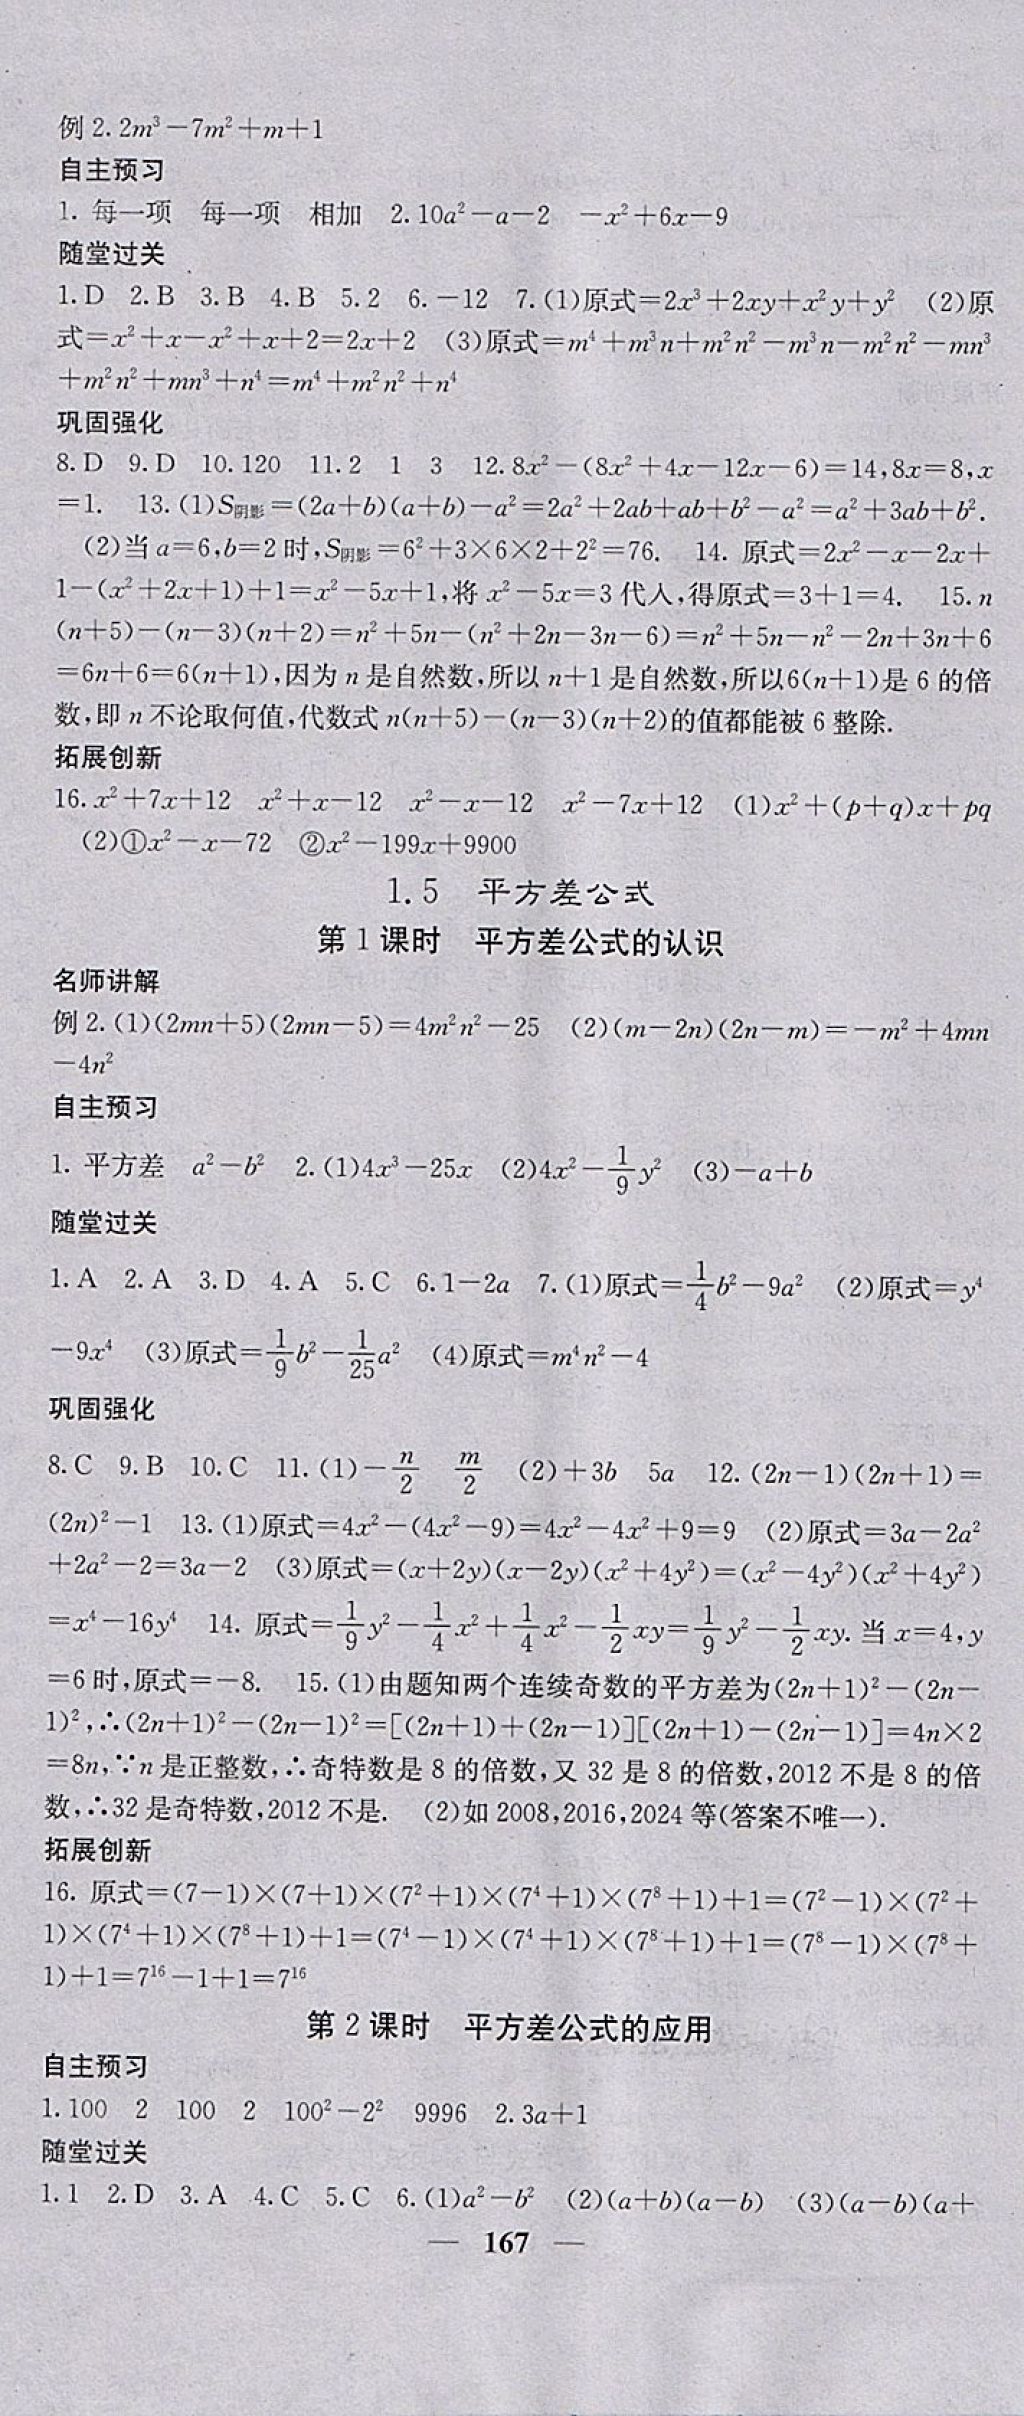 例 2. 2m³－7m²＋m＋1
自主预习
1. 每一项　每一项　相加　2. 10a²－a－2　－x²＋6x－9
随堂过关
1. D　2. B　3. B　4. B　5. 2　6. －12　7. (1)原式＝2x³＋2xy＋x²y＋y²　(2)原
式＝x²＋x－x²＋x＋2＝2x＋2　(3)原式＝m⁴＋m³n＋m²n²－m³n－m²n²－mn³
＋m²n²＋mn³＋n⁴＝m⁴＋m²n²＋n⁴
巩固强化
8. D　9. D　10. 120　11. 2　1　3　12. 8x²－(8x²＋4x－12x－6)＝14,8x＝8,x
＝1.　13. (1)S阴影＝(2a＋b)(a＋b)－a²＝2a²＋2ab＋ab＋b²－a²＝a²＋3ab＋b².
(2)当 a＝6,b＝2 时,S阴影＝6²＋3×6×2＋2²＝76.　14. 原式＝2x²－x－2x＋
1－(x²＋2x＋1)＋1＝x²－5x＋1,将 x²－5x＝3 代入,得原式＝3＋1＝4.　15. n
(n＋5)－(n－3)(n＋2)＝n²＋5n－(n²＋2n－3n－6)＝n²＋5n－n²－2n＋3n＋6
＝6n＋6＝6(n＋1),因为 n 是自然数,所以 n＋1 是自然数,所以6(n＋1)是 6 的倍
数,即 n 不论取何值,代数式 n(n＋5)－(n－3)(n＋2)的值都能被 6 整除.
拓展创新
16. x²＋7x＋12　x²＋x－12　x²－x－12　x²－7x＋12　(1)x²＋(p＋q)x＋pq
(2)①x²－x－72　②x²－199x＋9900
1.5　平方差公式
第 1 课时　平方差公式的认识
名师讲解
例 2. (1)(2mn＋5)(2mn－5)＝4m²n²－25　(2)(m－2n)(2n－m)＝－m²＋4mn
－4n²
自主预习
1. 平方差　a²－b²　2. (1)4x³－25x　(2)4x²－1/9 y²　(3)－a＋b
随堂过关
1. A　2. A　3. D　4. A　5. C　6. 1－2a　7. (1)原式＝1/4 b²－9a²　(2)原式＝y⁴
－9x⁴　(3)原式＝1/9 b²－1/25 a²　(4)原式＝m⁴n²－4
巩固强化
8. C　9. B　10. C　11. (1)－n/2　m/2　(2)＋3b　5a　12. (2n－1)(2n＋1)＝
(2n)²－1　13. (1)原式＝4x²－(4x²－9)＝4x²－4x²＋9＝9　(2)原式＝3a－2a²
＋2a²－2＝3a－2　(3)原式＝(x＋2y)(x－2y)(x²＋4y²)＝(x²－4y²)(x²＋4y²)
＝x⁴－16y⁴　14. 原式＝1/9 y²－1/4 x²＋1/4 x²－1/2 xy＝1/9 y²－1/2 xy. 当 x＝4,y
＝6 时,原式＝－8.　15. (1)由题知两个连续奇数的平方差为(2n＋1)²－(2n－
1)²,∴(2n＋1)²－(2n－1)²＝[(2n＋1)＋(2n－1)][(2n＋1)－(2n－1)]＝4n×2
＝8n,∵n 是正整数,∴奇特数是 8 的倍数,又 32 是 8 的倍数,2012 不是 8 的倍
数,∴32 是奇特数,2012 不是.　(2)如 2008,2016,2024 等(答案不唯一).
拓展创新
16. 原式＝(7－1)×(7＋1)×(7²＋1)×(7⁴＋1)×(7⁸＋1)＋1＝(7²－1)×(7²＋
1)×(7⁴＋1)×(7⁸＋1)＋1＝(7⁴－1)×(7⁴＋1)×(7⁸＋1)＋1＝(7⁸－1)×(7⁸＋
1)＋1＝7¹⁶－1＋1＝7¹⁶
第 2 课时　平方差公式的应用
自主预习
1. 100　2　100　2　100²－2²　9996　2. 3a＋1
随堂过关
1. 1　2. D　3. A　4. C　5. C　6. (1)a²－b²　(2)(a＋b)(a－b)　(3)(a－b)(a＋
— 167 —